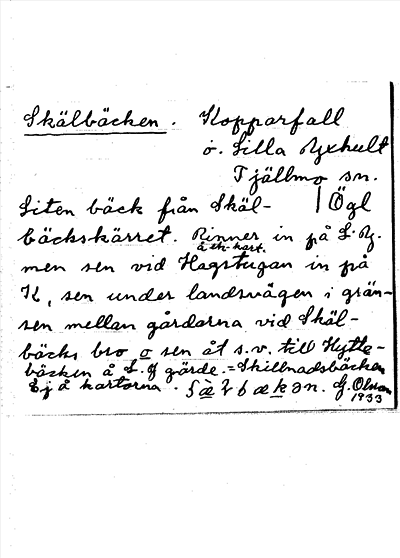 Skälbäcken. Kopparfall
o. Lilla Yxhult
Tjällmo sn.
Liten bäck från Skäl- | Ögl
bäckskärret. Rinner in på L. Y.
å ek. kart.
men sen vid Hagstugan in på
K, sen under landsvägen i grän-
sen mellan gårdarna vid Skäl-
bäcks bro o sen åt s.v. till Hytte-
bäcken å L. Y gärde. = Skillnadsbäcken
Ej å kartorna. G. Olsson
1933